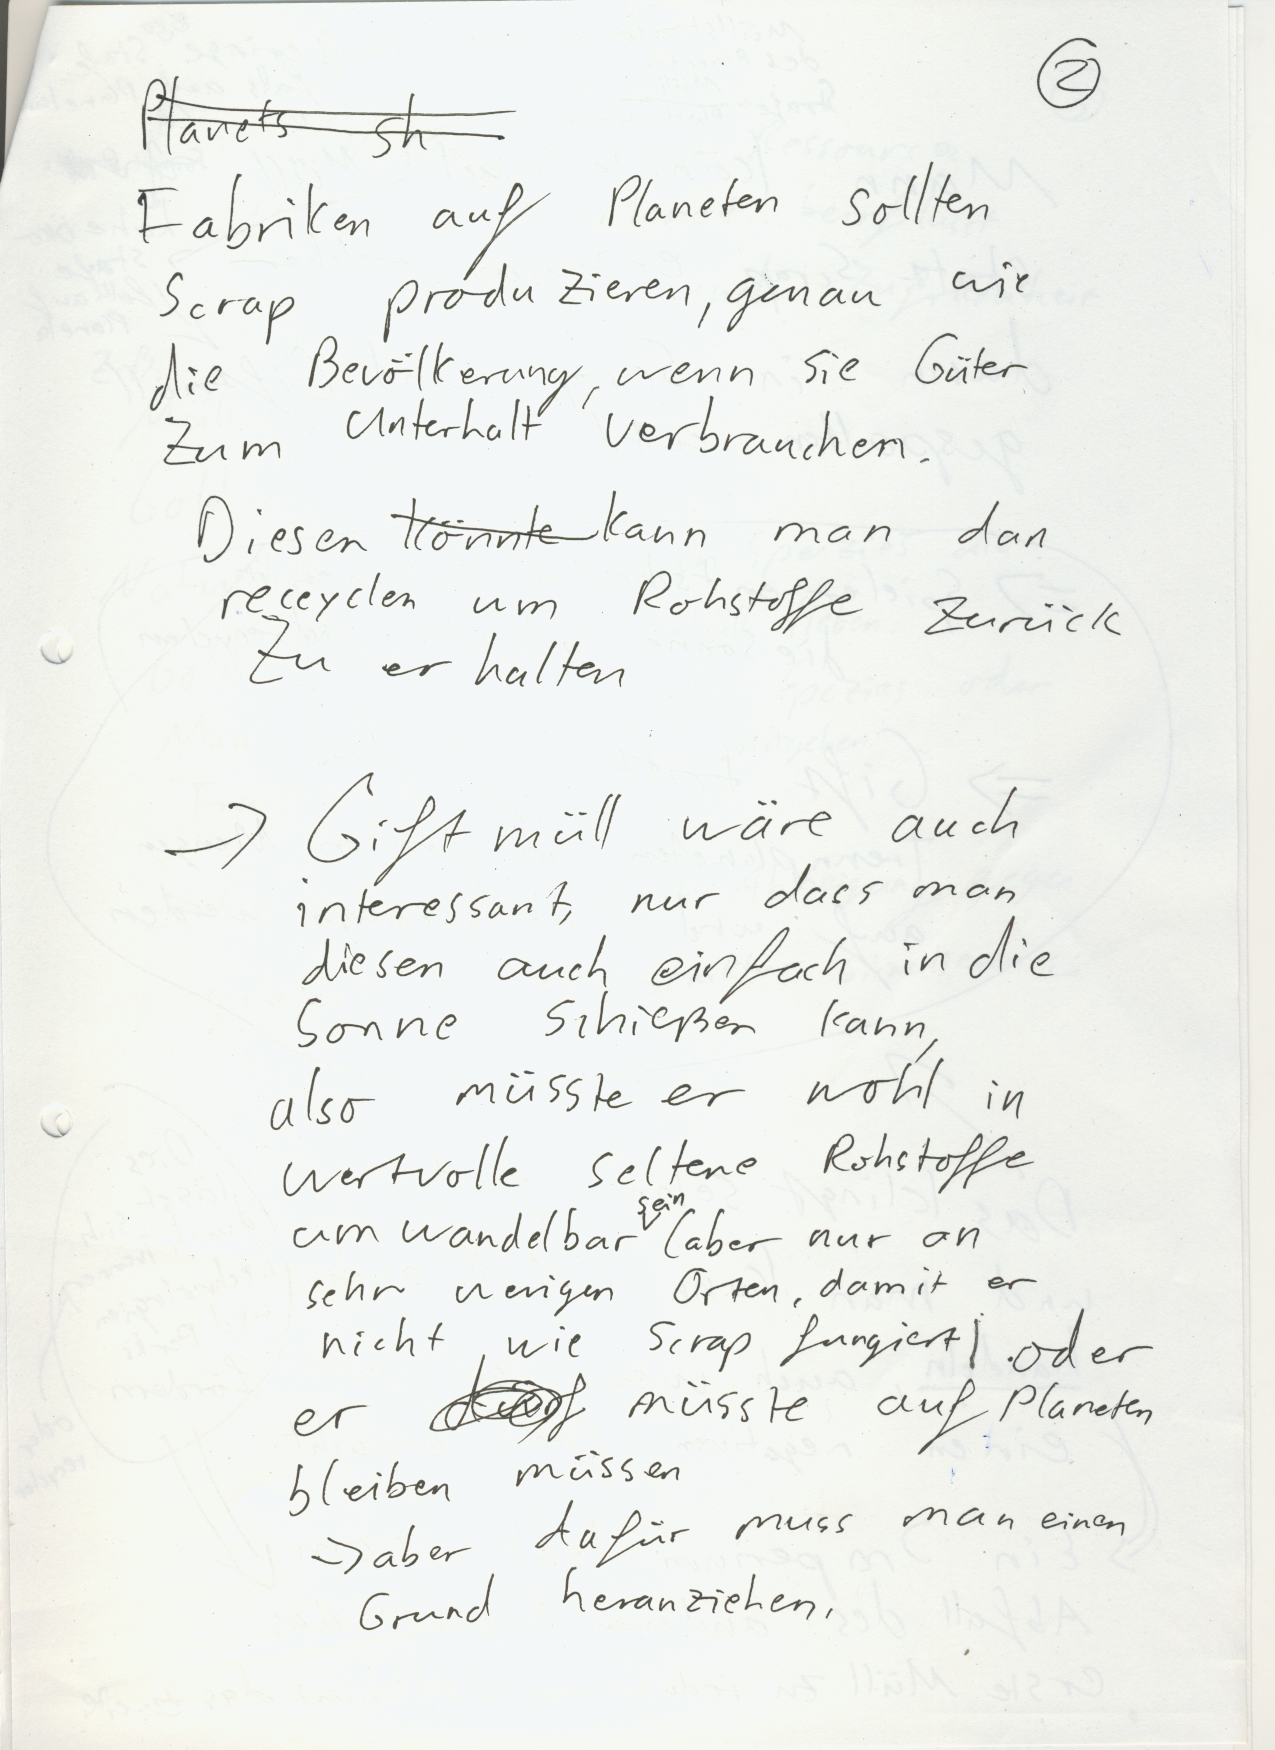 2
Planets sh
Fabriken auf Planeten sollten
Scrap produzieren, genau wie
die Bevölkerung, wenn sie Güter
zum Unterhalt verbrauchen.
Diesen könnte kann man dan
receyclen um Rohstoffe zurück
zu erhalten
→ Giftmüll wäre auch
interessant, nur dass man
diesen auch einfach in die
Sonne schießen kann,
also müsste er wohl in
wertvolle seltene Rohstoffe
umwandelbar sein (aber nur an
sehr wenigen Orten, damit er
nicht wie Scrap fungiert) oder
er darf müsste auf Planeten
bleiben müssen
→ aber dafür muss man einen
Grund heranziehen.